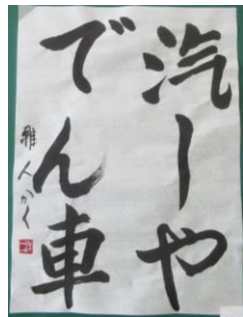 汽しや
でん車
雅人かく